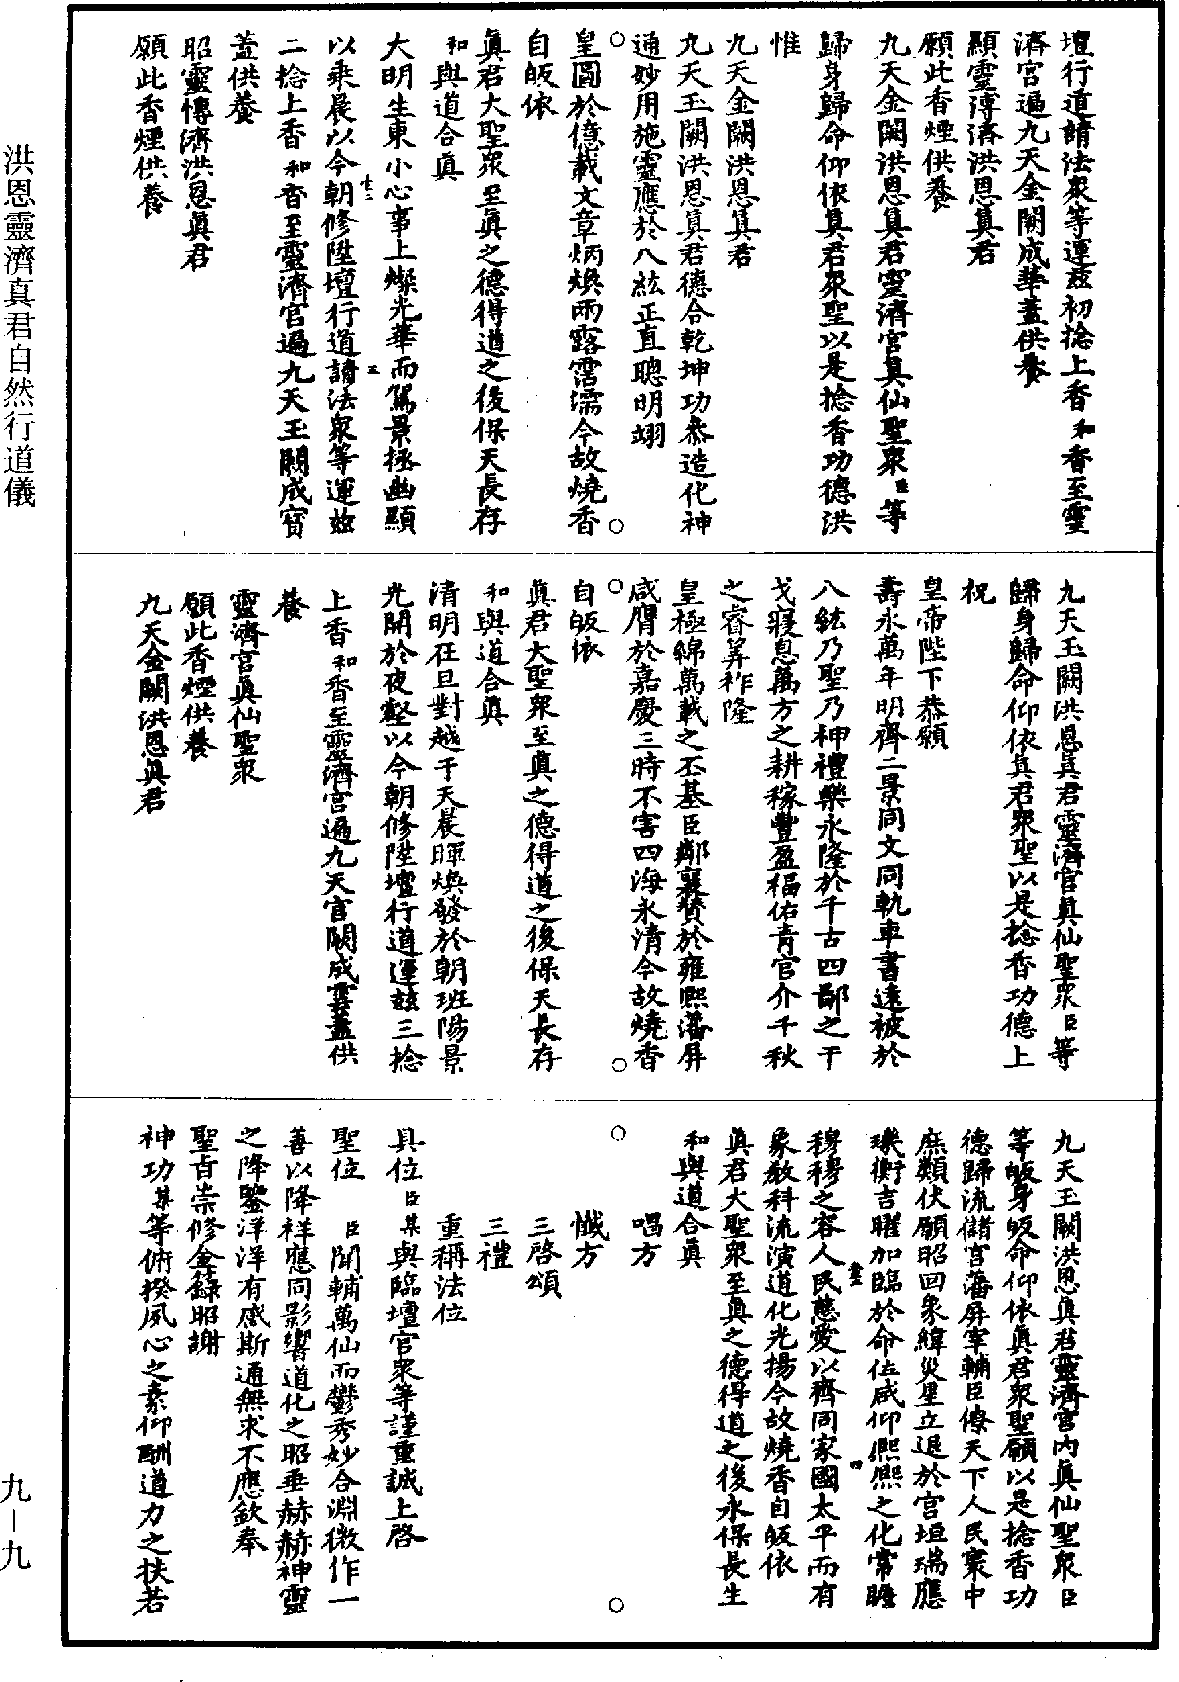 壇行道請法衆等運兹初捻上香和香至靈
濟宫遍九天金闕成華蓋供養
顯靈溥濟洪恩真君
願此香煙供養
九天金闕洪恩真君靈濟宫真仙聖衆臣等
歸身歸命仰依真君衆聖以是捻香功德洪
惟
九天金闕洪恩真君
九天玉闕洪恩真君德合乾坤功叅造化神
通妙用施靈應於八紘正直聰明翊
皇圖於億載文章炳煥雨露霑濡今故燒香
自皈依
真君大聖衆至真之德得道之後保天長存
和與道合真
大明生東小心事上燦光華而駕景極幽顯
以乘晨以今朝修陞壇行道請法衆等運兹
二捻上香和香至靈濟宫遍九天玉闕成寳
蓋供養
昭靈博濟洪恩真君
願此香煙供養
九天玉闕洪恩真君靈濟宫真仙聖衆臣等
歸身歸命仰依真君衆聖以是捻香功德上
祝
皇帝陛下恭願
壽永萬年明齊二景同文同軌車書遠被於
八紘乃聖乃神禮樂永隆於千古四鄙之干
戈寢息萬方之耕稼豐盈福佑青宫介千秋
之睿筭祚隆
皇極綿萬載之丕基臣鄰襄贊於雍熙藩屏
咸膺於嘉慶三時不害四海永清今故燒香
自皈依
真君大聖衆至真之德得道之後保天長存
和與道合真
清明在旦對越于天晨暉煥發於朝班陽景
光開於夜壑以今朝修陞壇行道運兹三捻
上香和香至靈濟宫遍九天宫闕成雲蓋供
養
靈濟宫真仙聖衆
願此香煙供養
九天金闕洪恩真君
九天玉闕洪恩真君靈濟宫内真仙聖衆臣
等皈身皈命仰依真君衆聖願以是捻香功
德歸流儲宫藩屏宰輔臣僚天下人民衆中
庶類伏願昭回象緯災星立退於宫垣瑞應
璣衡吉曜加臨於命位咸仰熙熙之化常瞻
穆穆之容人民慈愛以齊同家國太平而有
象教科流演道化光揚今故燒香自皈依
真君大聖衆至真之德得道之後永保長生
和與道合真
唱方
懺方
三啓頌
三禮
重稱法位
具位臣某與臨壇官衆等謹重誠上啓
聖位　臣聞輔萬仙而鬱秀妙合淵微作一
善以降祥應同影響道化之昭垂赫赫神靈
之降鑒洋洋有感斯通無求不應欽奉
聖旨崇修金籙昭謝
神功某等俯揆夙心之素仰酬道力之扶若
洪恩靈濟真君自然行道儀
九－九